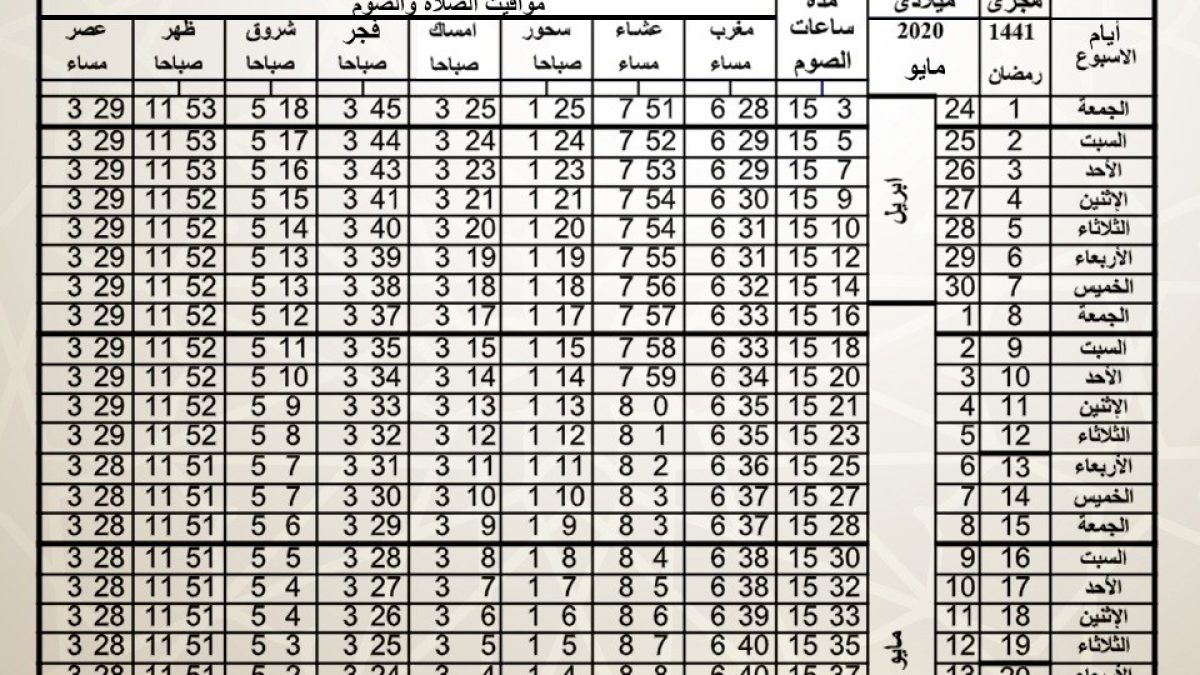 مواقيت الصلاة والصوم
مدة ميلادى هجرى
أيام الاسبوع 1441 رمضان 2020 مايو ساعات الصوم مغرب مساء عشاء مساء سحور صباحا امساك صباحا فجر صباحا شروق صباحا ظهر صباحا عصر مساء
الجمعة 1 24 15 3 6 28 7 51 1 25 3 25 3 45 5 18 11 53 3 29
السبت 2 25 15 5 6 29 7 52 1 24 3 24 3 44 5 17 11 53 3 29
الأحد 3 26 15 7 6 29 7 53 1 23 3 23 3 43 5 16 11 53 3 29
الإثنين 4 27 ابريل 15 9 6 30 7 54 1 21 3 21 3 41 5 15 11 52 3 29
الثلاثاء 5 28 15 10 6 31 7 54 1 20 3 20 3 40 5 14 11 52 3 29
الأربعاء 6 29 15 12 6 31 7 55 1 19 3 19 3 39 5 13 11 52 3 29
الخميس 7 30 15 14 6 32 7 56 1 18 3 18 3 38 5 13 11 52 3 29
الجمعة 8 1 15 16 6 33 7 57 1 17 3 17 3 37 5 12 11 52 3 29
السبت 9 2 15 18 6 33 7 58 1 15 3 15 3 35 5 11 11 52 3 29
الأحد 10 3 15 20 6 34 7 59 1 14 3 14 3 34 5 10 11 52 3 29
الإثنين 11 4 15 21 6 35 8 0 1 13 3 13 3 33 5 9 11 52 3 29
الثلاثاء 12 5 15 23 6 35 8 1 1 12 3 12 3 32 5 8 11 52 3 29
الأربعاء 13 6 15 25 6 36 8 2 1 11 3 11 3 31 5 7 11 51 3 28
الخميس 14 7 15 27 6 37 8 3 1 10 3 10 3 30 5 7 11 51 3 28
الجمعة 15 8 15 28 6 37 8 3 1 9 3 9 3 29 5 6 11 51 3 28
السبت 16 9 15 30 6 38 8 4 1 8 3 8 3 28 5 5 11 51 3 28
الأحد 17 10 15 32 6 38 8 5 1 7 3 7 3 27 5 4 11 51 3 28
الإثنين 18 11 15 33 6 39 8 6 1 6 3 6 3 26 5 4 11 51 3 28
الثلاثاء 19 12 مايو 15 35 6 40 8 7 1 5 3 5 3 25 5 3 11 51 3 28
الأربعاء 20 13 15 37 6 40 8 8 1 4 3 4 3 24 5 2 11 51 3 28